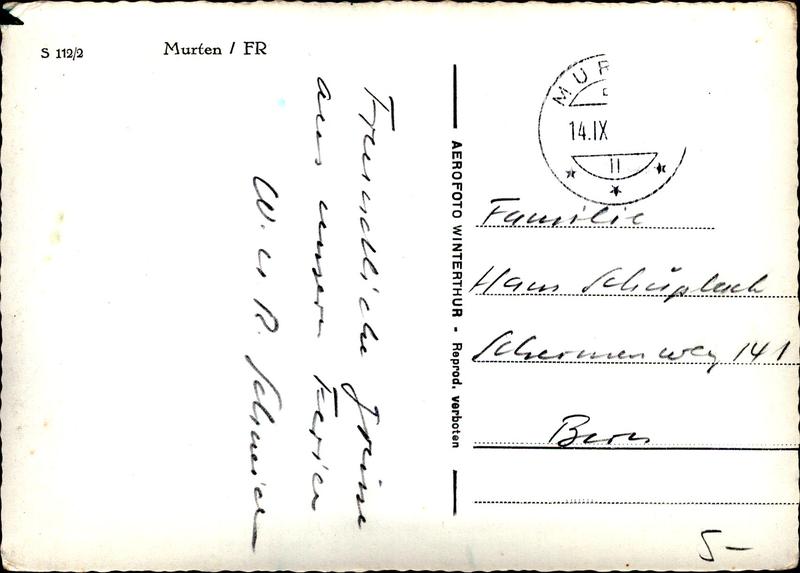 S 112/2
Murten / FR
Freundliche Grüsse
aus unsern Ferien
W. u. R. Schneider
AEROFOTO WINTERTHUR - Reprod. verboten
MUR
14.IX
11
Familie
Hans Schüpbach
Schermenweg 141
Bern
5-